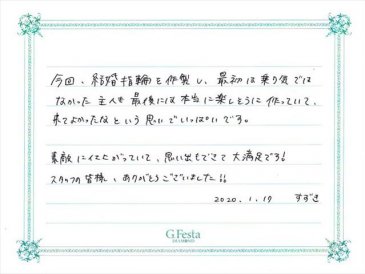 今回、結婚指輪を作製し、最初は乗り気では
なかった主人も最後には本当に楽しそうに作っていて、
来てよかったなという思いでいっぱいです。
素敵に仕上がっていて、思い出もできて大満足です!
スタッフの皆様、ありがとうございました!!
2020.1.19 すずき
G.Festa
DIAMOND